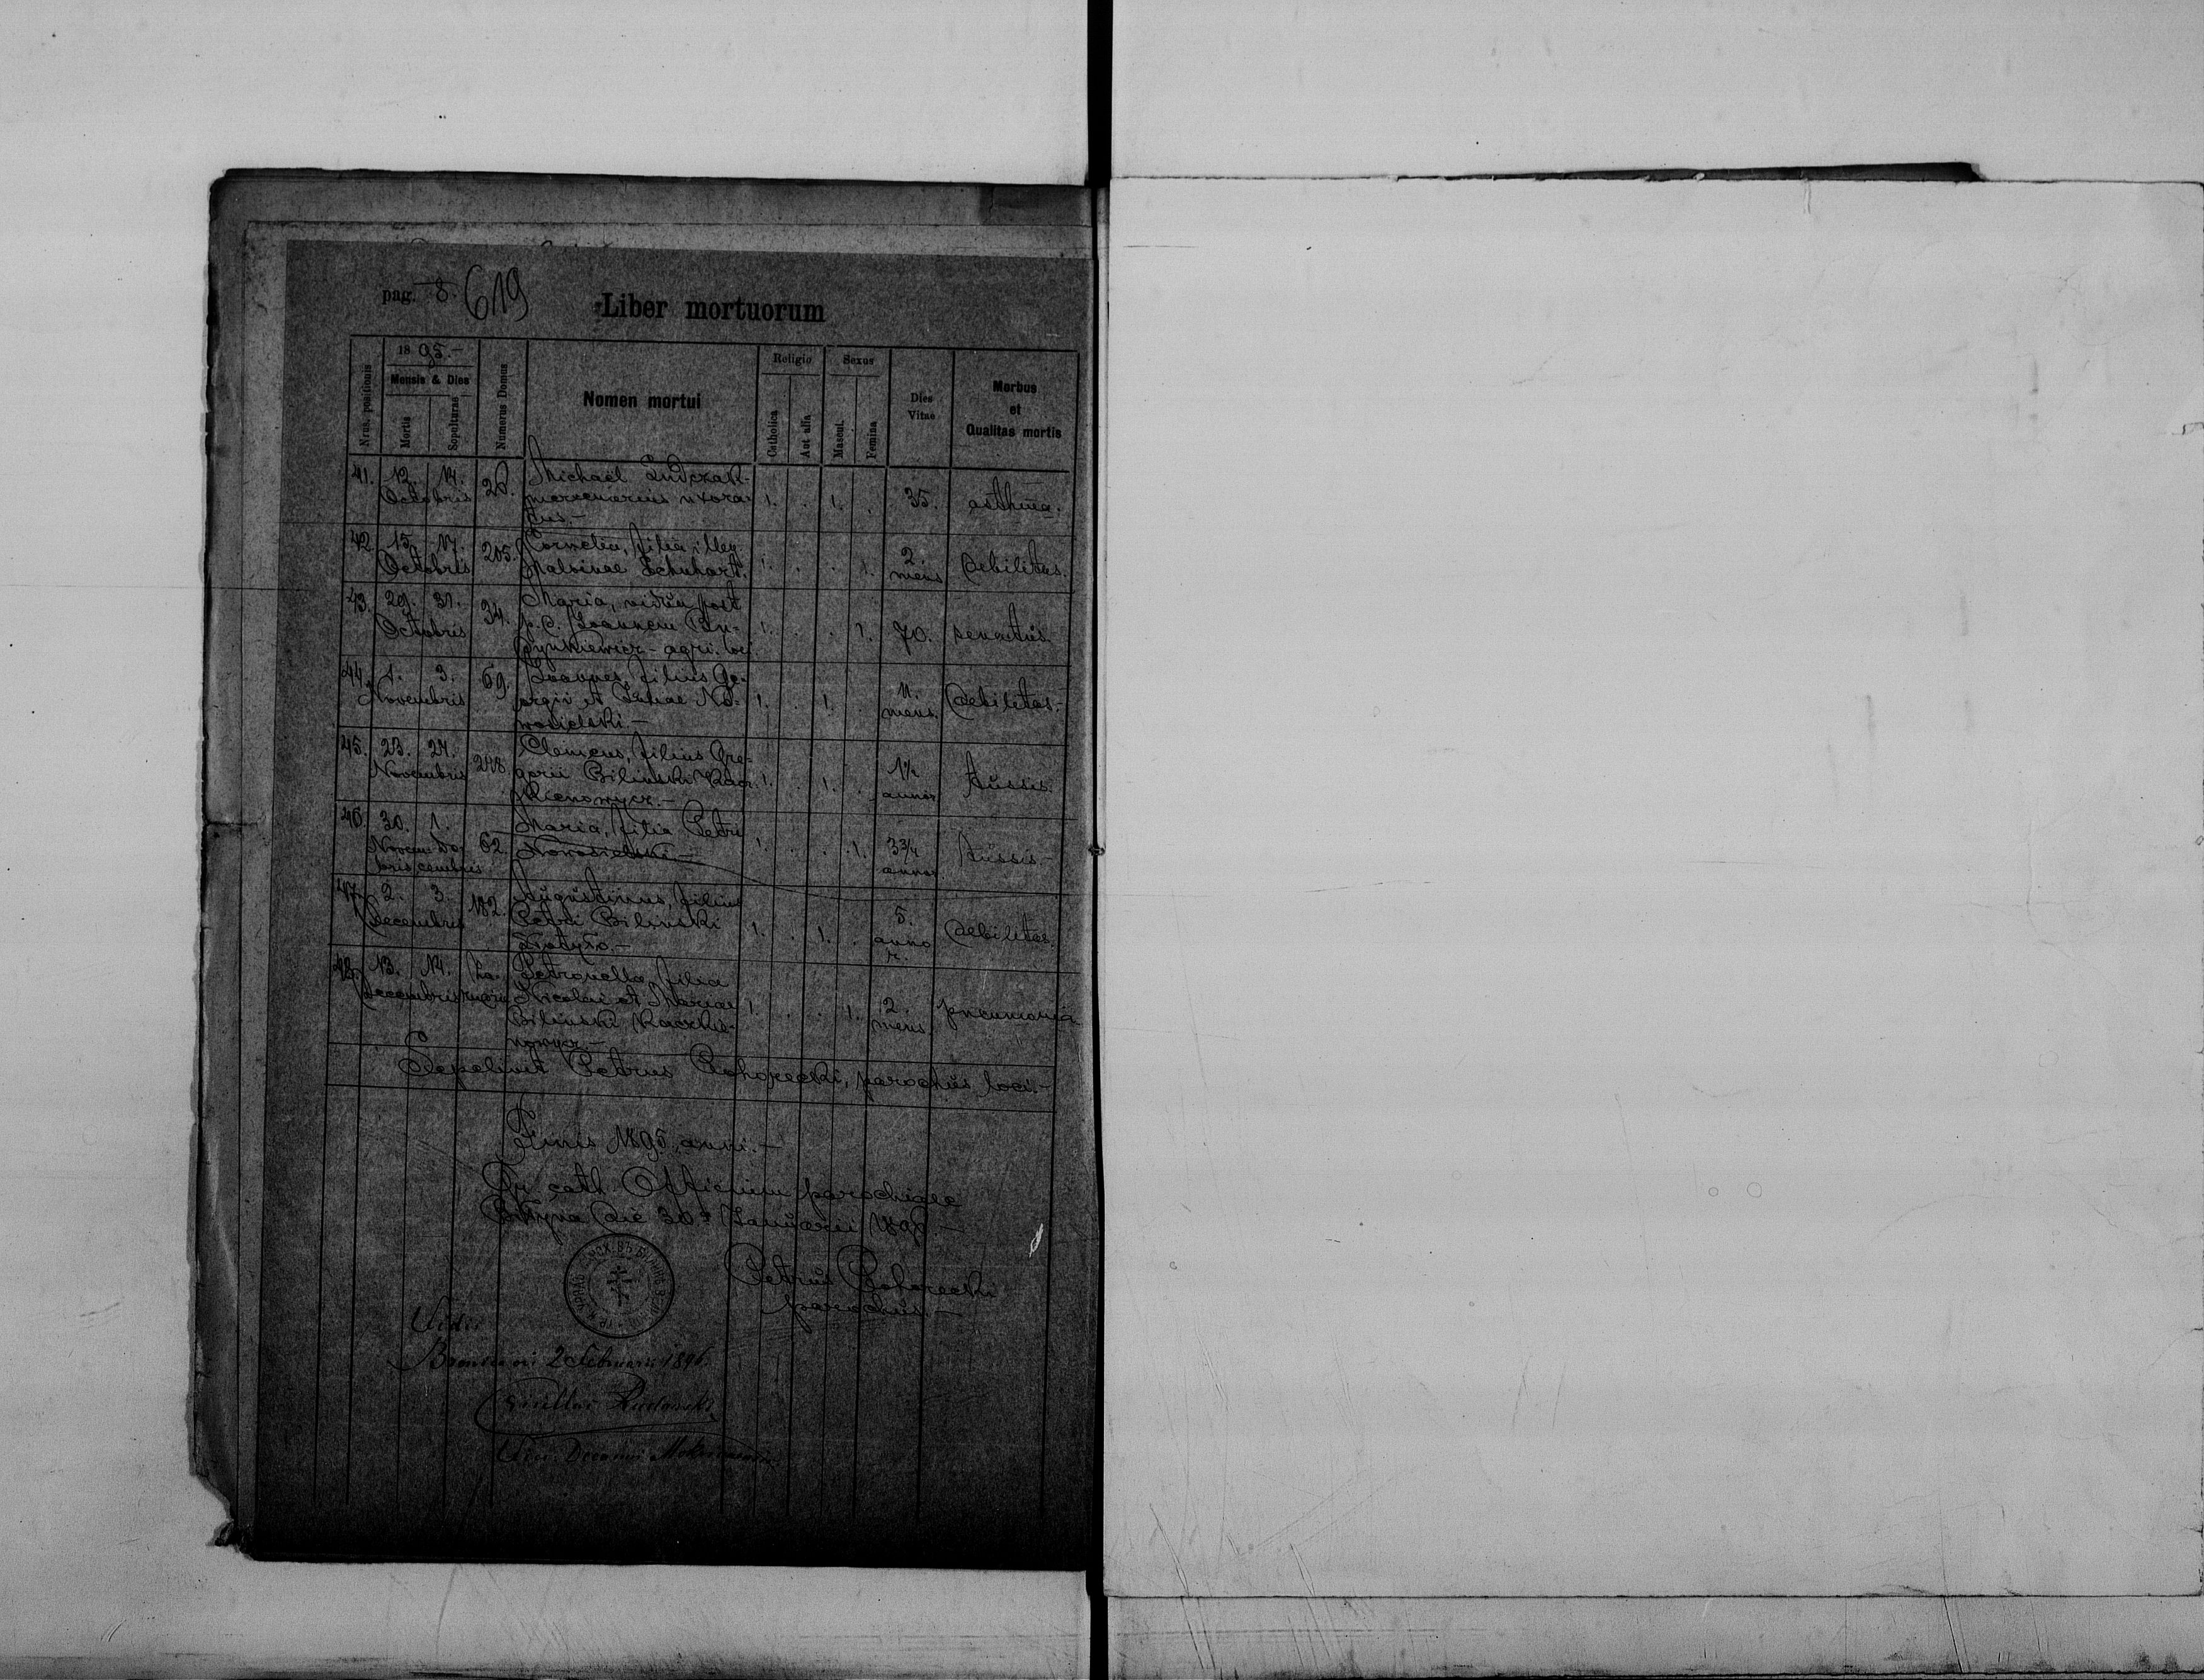 pag. 8. 619
Liber mortuorum
Nrus. positionis
1895.-
Mensis & Dies
Mortis
Sepulturae
Numerus Domus
Nomen mortui
Religio
Catholica
Aut alia
Sexus
Mascul.
Femina
Dies Vitae
Morbus et Qualitas mortis
41. 12. 14. Octobris 26. Michaël
mercenarius uxora-
tus.- 1. . 1. . 35. asthma.
42. 15. 17. Octobris 205. Cornelia, filia illeg.
Malvinae Schuhart. 1. . . 1. 2. mens debilitas.
43. 29. 31. Octobris 34. Maria, vidua post
p. d. Joannem
agri. loci 1. . . 1. 70. senectus.
44. 1. 3. Novembris 69. Joannes, filius Ge-
orgii et Juliae No-
wosielski.- 1. . 1. . 11. mens. debilitas.-
45. 23. 24. Novembris 248. Clemens, filius Gre-
gorii Bilinski Kacz-
kienowycz.- 1. . 1. . 1½ annor tussis.
46. 30. Novembris 1. Decembris 62. Maria, filia Petri
Nowosielski.- 1. . . 1. 3¾ annor tussis.-
47. 2. 3. Decembris 182. Augustinus, filius
Petri Bilinski
1. . 1. . 5. annor. debilitas.
48. 13. 14. Decembris Petronella, filia
Nicolai et Mariae
Bilinski Kaczkie-
nowycz.- 1. . . 1. 2. mens. pneumonia
Sepelivit Petrus Pohorecki, parochus loci.-
Finis 1895. anni.-
Gr. cath. Officium parochiale
die 30º Januarii 1896.-
Petrus Pohorecki
parochus.-
Vidi
2 Februarii 1896.
Vice Decanus